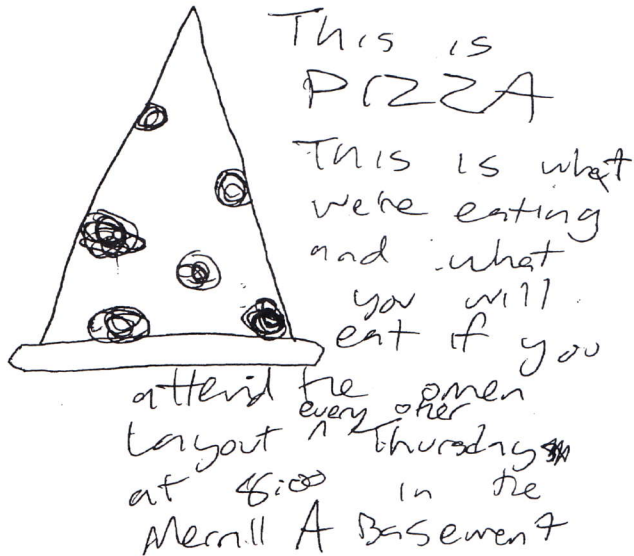 This is
PIZZA
This is what
we're eating
and what
you will
eat if you
attend the omen
Layout ^ every other Thursday
at 8:00 in the
Merrill A Basement